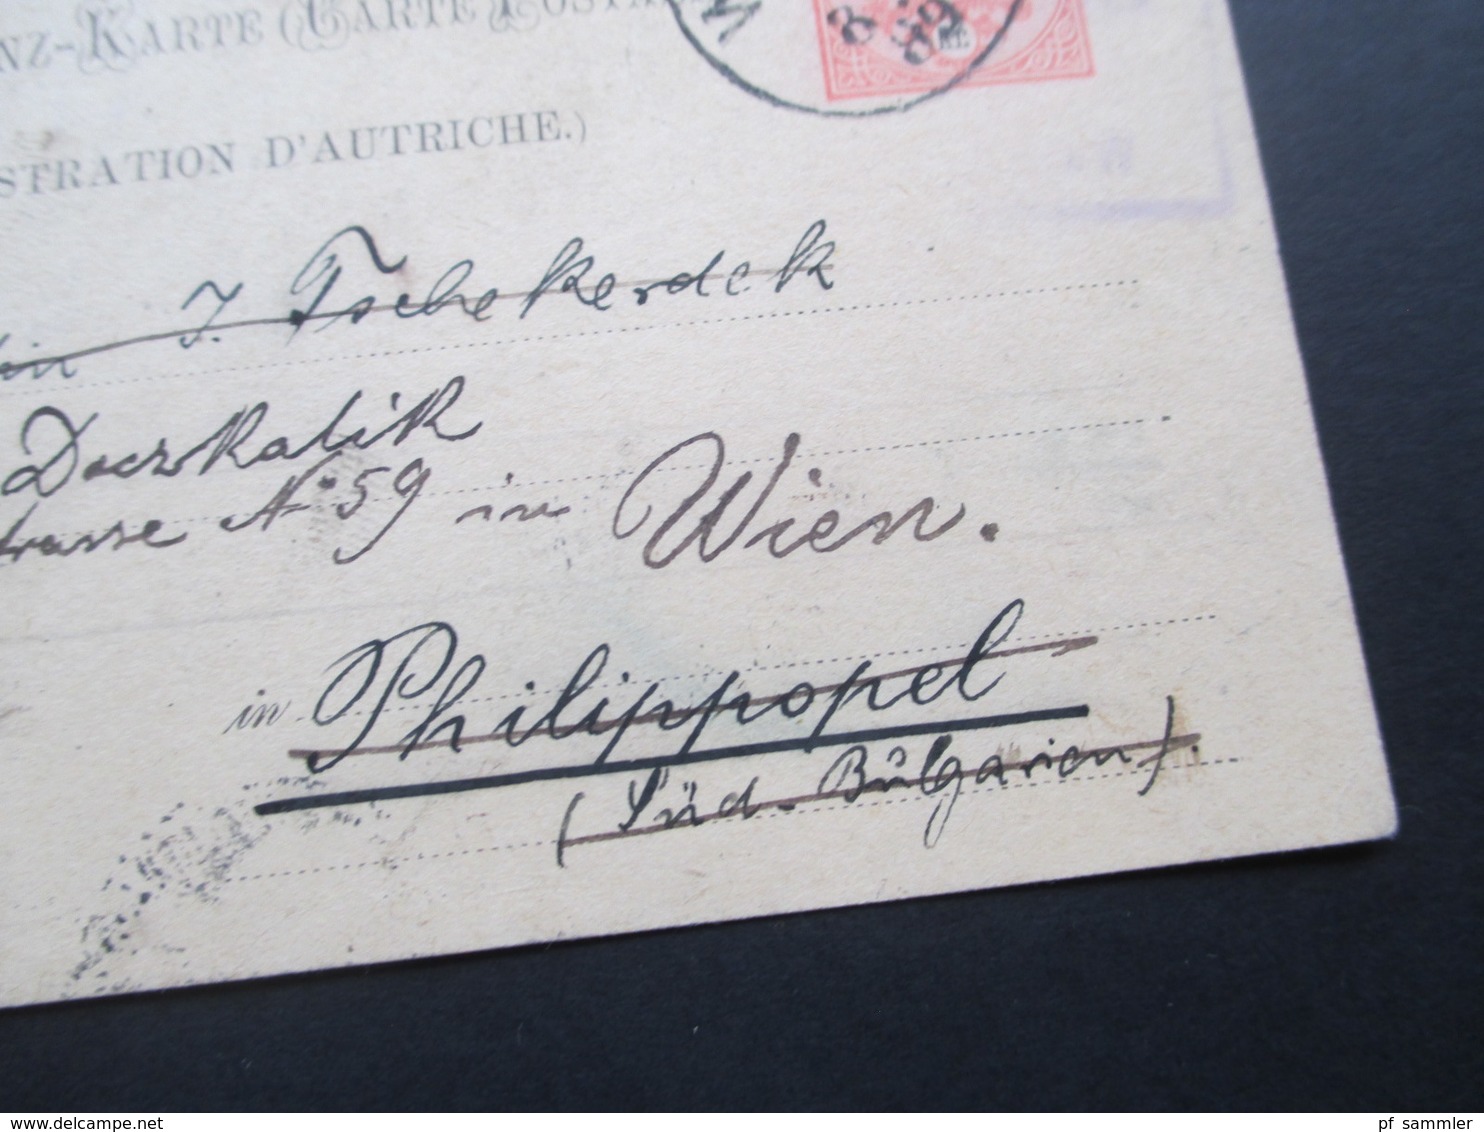 NZ-KARTE (CARTE POSTA
STRATION D'AUTRICHE.)
W
8
89
J. Tschekerdek
Daczkalik
trasse No 59 in Wien.
in Philippopel
(Süd-Bulgarien).
pf_sammler